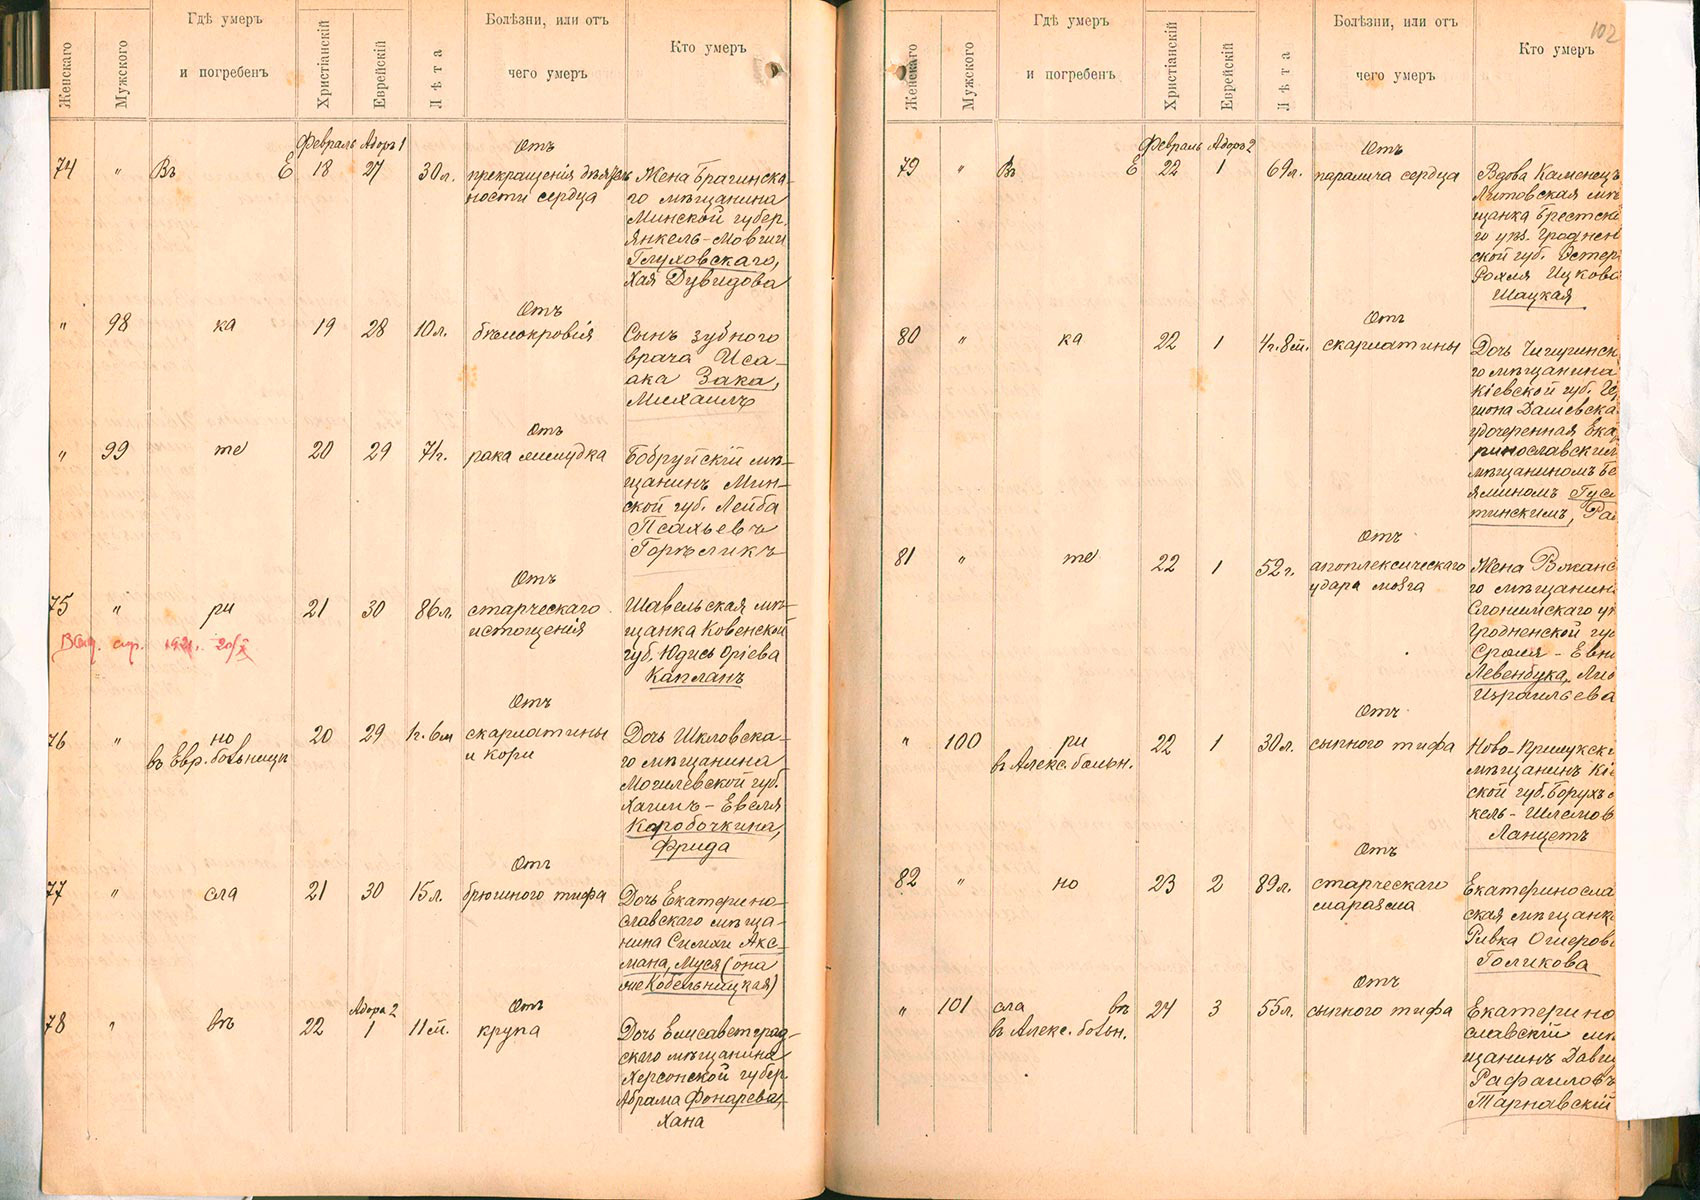 Женскаго
Мужского
Гдѣ умеръ
и погребенъ
Христіанскій
Еврейскій
Лѣта
Болѣзни, или отъ
чего умеръ
Кто умеръ
Февраль Адоръ 1
74 " Въ Е 18 27 30 л.
Отъ
прекращенія дѣятель
ности сердца
Жена Брагинска-
го мѣщанина
Минской губер.
Янкель-Мовши
Глуховскаго,
Хая Дувидова
" 98 ка 19 28 10 л.
Отъ
бѣлокровія
Сынъ зубного
врача Иса-
ака Зака,
Михаилъ
" 99 те 20 29 71 г.
Отъ
рака желудка
Бобруйскій мѣ-
щанинъ Мин-
ской губ. Лейба
Псахьевъ
Горѣликъ
75 " ри 21 30 86 л.
1921. 20/X
Отъ
старческаго
истощенія
Шавельская мѣ-
щанка Ковенской
губ. Юдись Оріева
Капланъ
76 " но 20 29 1 г. 6 м
въ Евр. больницѣ
Отъ
скарлатины
и кори
Дочь Шкловска-
го мѣщанина
Могилевской губ.
Хаимъ-Евеля
Коробочкина,
Фрида
77 " сла 21 30 15 л.
Отъ
брюшного тифа
Дочь Екатерино-
славскаго мѣща-
нина Симхи Акс-
мана, Муся (она
же Кобельницкая)
Адоръ 2
78 " въ 22 1 11 м.
Отъ
крупа
Дочь Елисаветград-
скаго мѣщанина
Херсонской губер.
Абрама Фонарева,
Хана
102
Женскаго
Мужского
Гдѣ умеръ
и погребенъ
Христіанскій
Еврейскій
Лѣта
Болѣзни, или отъ
чего умеръ
Кто умеръ
Февраль Адоръ 2
79 " Въ Е 22 1 69 л.
Отъ
паралича сердца
Вдова Каменецъ
Литовская мѣ
щанка Брестска
го уѣз. Гроднен
ской губ. Эстер
Рохля Ицкова
Шацкая
80 " ка 22 1 4 г. 8 м.
Отъ
скарлатины
Дочь Чигиринск
го мѣщанина
Кіевской губ.
Дашевска
удочеренная Ека
ринославским
мѣщаниномъ Бе
яминомъ Гус
тинскимъ,
81 " те 22 1 52 г.
Отъ
апоплексическаго
удара мозга
Жена
го мѣщанин
Слонимскаго у
Гродненской гу
Сролія - Евн
Левенбука,
Израильева
" 100 ри 22 1 30 л.
въ Алекс. больн.
Отъ
сыпного тифа
Ново-Прилукск
мѣщанинъ Кіе
ской губ. Борухъ
кель-Шлемов
Ланцетъ
82 " но 23 2 89 л.
Отъ
старческаго
маразма
Екатериносла
ская мѣщанка
Ривка Ошеров
Голикова
" 101 сла въ 24 3 55 л.
въ Алекс. больн.
Отъ
сыпного тифа
Екатерино
славскій мѣ
щанинъ Давид
Рафаиловъ
Тарнавскій